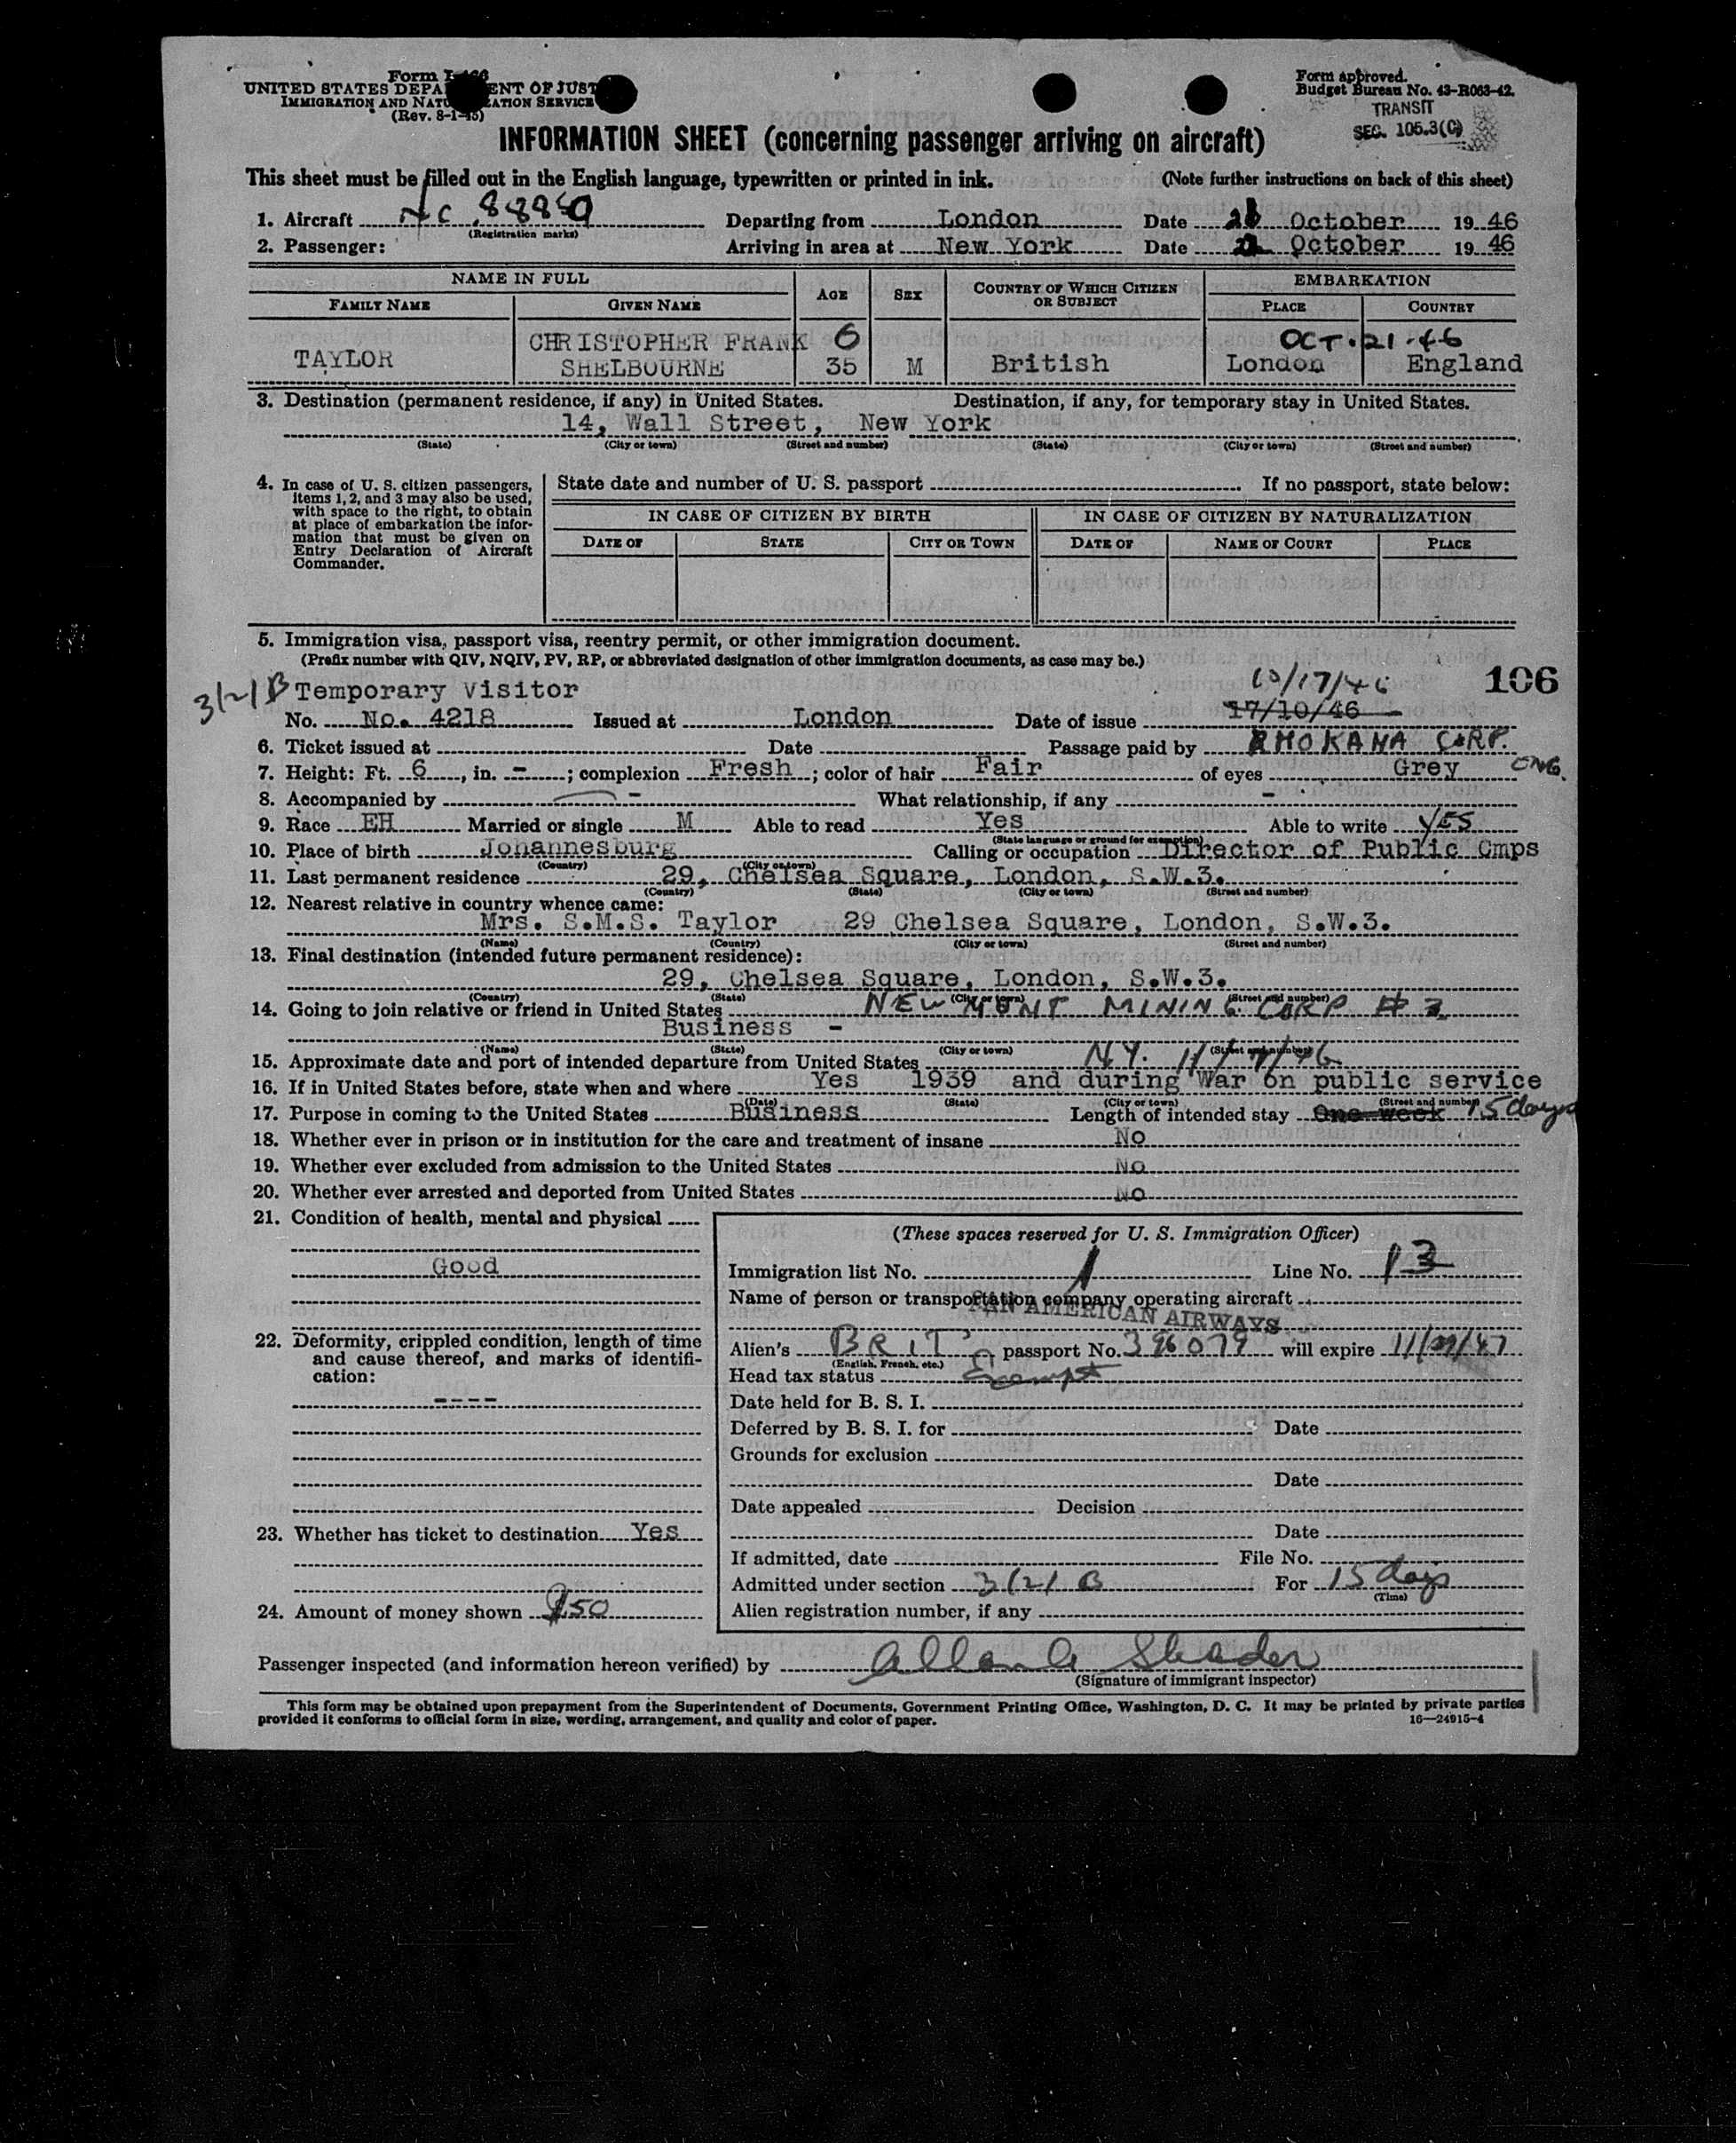 Form I-466
UNITED STATES DEPARTMENT OF JUSTICE
IMMIGRATION AND NATURALIZATION SERVICE
(Rev. 8-1-45)
Form approved.
Budget Bureau No. 43-R063-42.
TRANSIT
SEC. 105.3(C)
INFORMATION SHEET (concerning passenger arriving on aircraft)
This sheet must be filled out in the English language, typewritten or printed in ink. (Note further instructions on back of this sheet)
1. Aircraft NC 88859 Departing from London Date October 1946
(Registration marks)
2. Passenger: Arriving in area at New York Date October 1946
NAME IN FULL AGE SEX COUNTRY OF WHICH CITIZEN OR SUBJECT EMBARKATION
FAMILY NAME GIVEN NAME PLACE COUNTRY
CHRISTOPHER FRANK 6 OCT. 21. 46
TAYLOR SHELBOURNE 35 M British London England
3. Destination (permanent residence, if any) in United States. Destination, if any, for temporary stay in United States.
14, Wall Street, New York
(State) (City or town) (Street and number) (State) (City or town) (Street and number)
4. In case of U. S. citizen passengers, items 1, 2, and 3 may also be used, with space to the right, to obtain at place of embarkation the information that must be given on Entry Declaration of Aircraft Commander.
State date and number of U. S. passport If no passport, state below:
IN CASE OF CITIZEN BY BIRTH IN CASE OF CITIZEN BY NATURALIZATION
DATE OF STATE CITY OR TOWN DATE OF NAME OF COURT PLACE
5. Immigration visa, passport visa, reentry permit, or other immigration document.
(Prefix number with QIV, NQIV, PV, RP, or abbreviated designation of other immigration documents, as case may be.)
3/2/B Temporary Visitor 10/17/46 106
No. No. 4218 Issued at London Date of issue 17/10/46
6. Ticket issued at Date Passage paid by RHOKANA CORP.
7. Height: Ft. 6, in. -; complexion Fresh; color of hair Fair of eyes Grey
8. Accompanied by - What relationship, if any -
9. Race EH Married or single M Able to read Yes Able to write YES
(State language or ground for exemption)
10. Place of birth Johannesburg Calling or occupation Director of Public Cmps
(Country) (City or town)
11. Last permanent residence 29, Chelsea Square, London, S.W.3.
(Country) (State) (City or town) (Street and number)
12. Nearest relative in country whence came:
Mrs. S.M.S. Taylor 29 Chelsea Square, London, S.W.3.
(Name) (Country) (City or town) (Street and number)
13. Final destination (intended future permanent residence):
29, Chelsea Square, London, S.W.3.
(Country) (State) (City or town) (Street and number)
14. Going to join relative or friend in United States NEWMONT MINING CORP # 3
Business -
(Name) (State) (City or town) (Street and number)
15. Approximate date and port of intended departure from United States N.Y. 11/7/46
16. If in United States before, state when and where Yes 1939 and during War on public service
(Date) (State) (City or town) (Street and number)
17. Purpose in coming to the United States Business Length of intended stay One week 15 days
18. Whether ever in prison or in institution for the care and treatment of insane No
19. Whether ever excluded from admission to the United States No
20. Whether ever arrested and deported from United States No
21. Condition of health, mental and physical
Good
22. Deformity, crippled condition, length of time and cause thereof, and marks of identification:
----
23. Whether has ticket to destination Yes
24. Amount of money shown $50
(These spaces reserved for U. S. Immigration Officer)
Immigration list No. 1 Line No. 13
Name of person or transportation company operating aircraft
PAN AMERICAN AIRWAYS
Alien's BRIT passport No. 396079 will expire 11/29/47
(English, French, etc.)
Head tax status Exempt
Date held for B. S. I.
Deferred by B. S. I. for Date
Grounds for exclusion
Date
Date appealed Decision
Date
If admitted, date File No.
Admitted under section 3/2/B For 15 days
(Time)
Alien registration number, if any
Passenger inspected (and information hereon verified) by
(Signature of immigrant inspector)
This form may be obtained upon prepayment from the Superintendent of Documents, Government Printing Office, Washington, D. C. It may be printed by private parties
provided it conforms to official form in size, wording, arrangement, and quality and color of paper. 16—24915-4